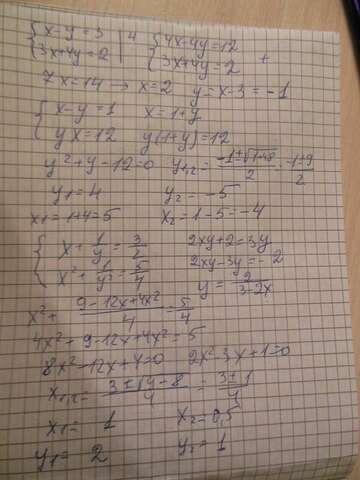 {x-y=3 | 4 {4x-4y=12
{3x+4y=2 {3x+4y=2 +
7x=14 → x=2 y=x-3=-1
{x-y=1 x=1+y
{yx=12 y(1+y)=12
y²+y-12=0 y₁,₂=(-1±√1+48)/2=(-1±9)/2
y₁=4 y₂=-5
x₁=1+4=5 x₂=1-5=-4
{x+1/y=3/2 2xy+2=3y
{x²+1/y²=5/4 2xy-3y=-2
y=2/(3-2x)
x²+(9-12x+4x²)/4=5/4
4x²+9-12x+4x²=5
8x²-12x+4=0 2x²-3x+1=0
x₁,₂=(3±√9-8)/4=(3±1)/4
x₁=1 x₂=0,5
y₁=2 y₂=1